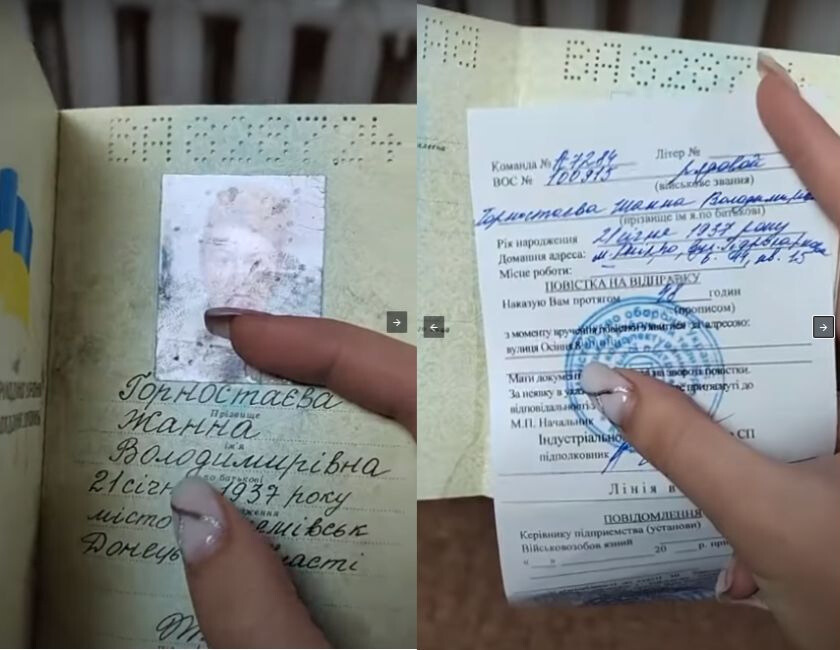 ВА 828724
Горностаєва
Прізвище
Жанна
ім'я
Володимирівна
по батькові
21 січн 1937 року
місто емівськ
Донець асті
ВА 82872
Команда № А 7284 Літер №
ВОС № 100915 рядовой
(військове звання)
Горностаєва Жанна Володимирів
(прізвище ім я.по батькові)
Рік народження 21 січня 1937 року
Домашня адреса: м. Дніпро, вул.
Місце роботи: б. 44, кв. 15
ПОВІСТКА НА ВІДПРАВКУ
Наказую Вам протягом годин
(прописом)
з моменту вручення повістки з'явитися за адресою:
вулиця Осіння 8
Мати документ на звороті повістки.
За неявку в притягнуті до
відповідальності з
М.П. Начальник
Індустріально СП
підполковник
Лінія в
ПОВІДОМЛЕННЯ
Керівнику підприємства (установи)
Військовозобов язаний
« » 20 р.